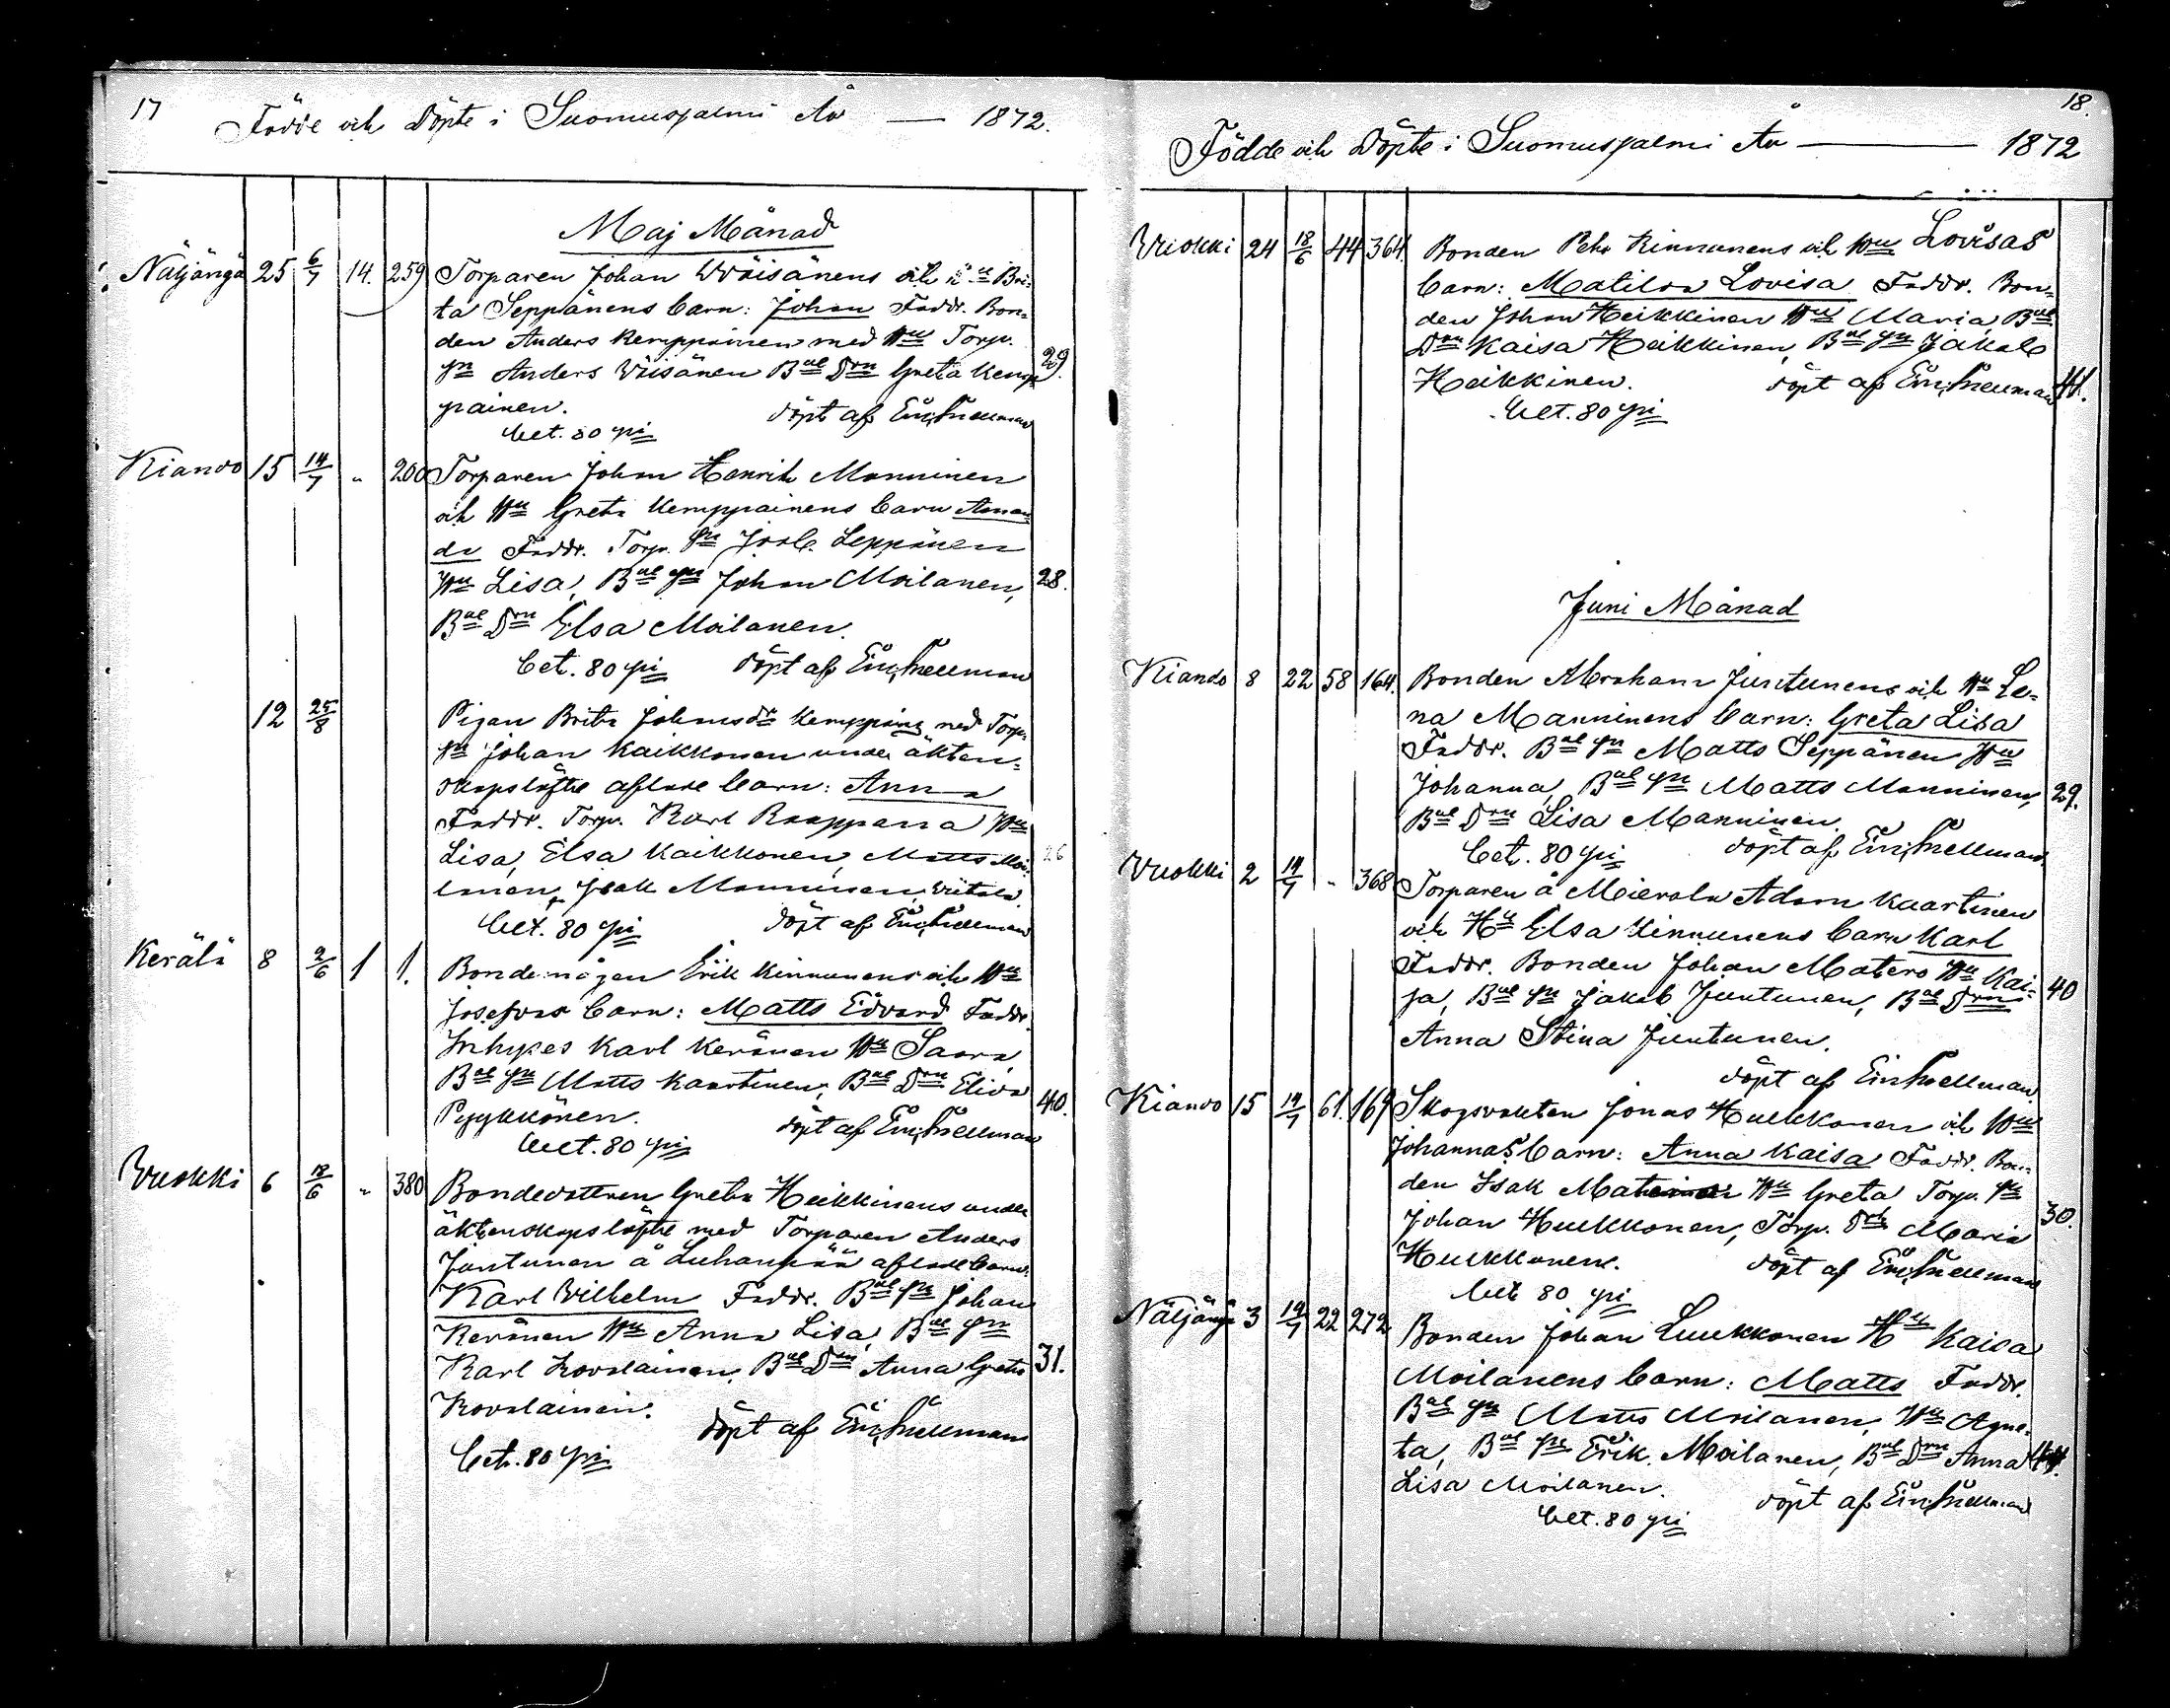 17
Födde och Döpte i Suomusjalmi År — 1872.
Maj Månad
Näljängä 25 6/7 14. 259 Torparen Johan Wäisänens och Hu Bri-
ta Seppänens barn: Johan Faddr. Bon-
den Anders Kemppainen med Hu Torp.
Sn Anders Väisänen Bde Drn Greta Kemp 29.
painen. döpt af Ein. Snellman
bet. 80 pi
Kiando 15 14/7 " 200 Torparen Johan Henrik Manninen
och Hu Greta Kemppainens barn Aman-
da Faddr. Torp. Sn Isak Seppänen
Hu Lisa, Bde Sn Johan Moilanen, 28.
Bde Drn Elsa Moilanen.
bet. 80 pi döpt af Ein. Snellman
12 25/8 Pigan Brita Johansdr Kemppains med Torp.
Sn Johan Kaikkonen under äkten-
skapslöfte aflade barn: Anna
Faddr. Torp. Karl Raappana Hu
Lisa, Elsa Kaikkonen, Matts Moi- 26
lanen, Isak Manninen
bet. 80 pi döpt af Ein. Snellman
Kerälä 8 2/6 1 1. Bondemågen Erik Kinnunens och Hu
Josefinas barn: Matts Edvard Faddr.
Inhyses Karl Keränen Hu Saara,
Bde Sn Matts Kaartinen, Bde Drn Elida 40.
Pyykkönen. döpt af Ein. Snellman
bet. 80 pi
Vuokki 6 18/6 " 380 Bondedottren Greta Heikkinens under
äktenskapslöfte med Torparen Anders
Juntunen å Luhanpää aflade barn:
Karl Vilhelm Faddr. Bde Sn Johan
Keränen Hu Anna Lisa, Bde Sn
Karl Kovalainen, Bde Drn Anna Greta 31.
Kovalainen. döpt af Ein. Snellman
bet. 80 pi
18.
Födde och Döpte i Suomusjalmi År — 1872
Vuokki 24 18/6 44 364. Bonden Pehr Kinnunens och Hu Lovisas
barn: Matilda Lovisa Faddr. Bon-
den Johan Heikkinen Hu Maria, Bde
Drn Kaisa Heikkinen, Bde Sn Jakob
Heikkinen. döpt af Ein. Snellman 41.
bet. 80 pi
Juni Månad
Kiando 8 22 58 164. Bonden Abraham Juntunens och Hu Le-
na Manninens barn: Greta Lisa
Faddr. Bde Sn Matts Seppänen Hu
Johanna, Bde Sn Matts Manninen, 29.
Bde Drn Lisa Manninen.
bet. 80 pi döpt af Ein. Snellman.
Vuokki 2 14/7 " 368 Torparen å Mierola Adam Kaartinen
och Hu Elsa Kinnunens barn Karl
Faddr. Bonden Johan Matero Hu Kai-
sa, Bde Sn Jakob Juntunen, Bde Drn 40
Anna Stina Juntunen.
döpt af Ein Snellman.
Kiando 15 14/7 61. 169 Skogsvakten Jonas Hulkkonen och Hu
Johannas barn: Anna Kaisa Faddr. Bon-
den Isak Hu Greta Torp. Sn
Johan Hulkkonen, Torp. Drn Maria 30.
Hulkkonen. döpt af Ein. Snellman
bet 80 pi
Näljängä 3 14/7 22 272 Bonden Johan Luukkonen Hu Kaisa
Moilanens barn: Matts Faddr.
Bde Sn Matts Moilanen, Hu Agne-
ta, Bde Sn Erik Moilanen, Bde Drn Anna 44.
Lisa Moilanen. döpt af Ein. Snellman
bet. 80 pi